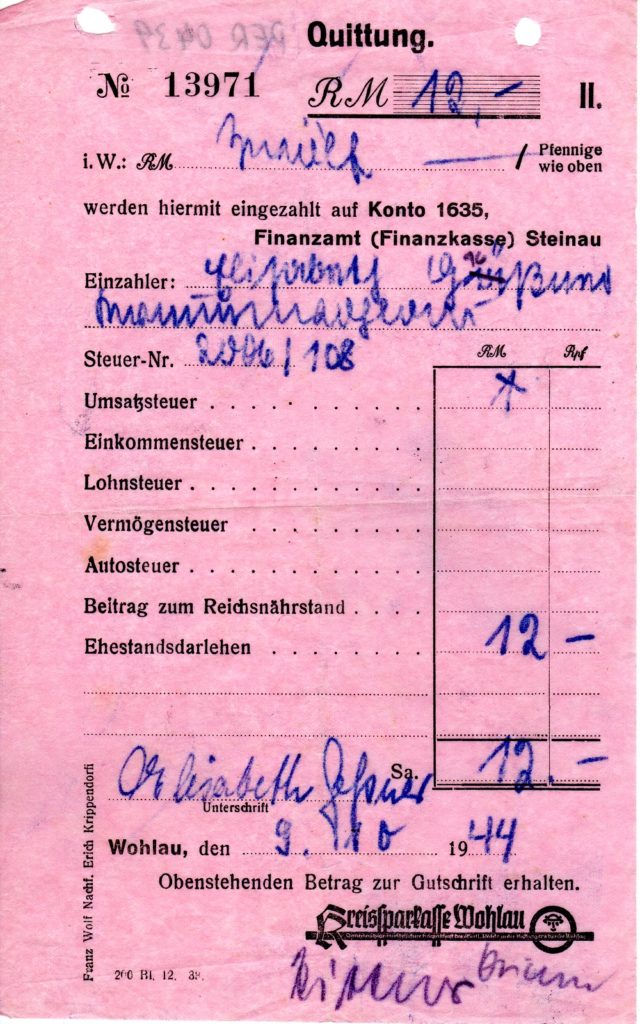 Quittung.
№ 13971 RM 12,- II.
i.W.: RM zwölf / Pfennige wie oben
werden hiermit eingezahlt auf Konto 1635,
Finanzamt (Finanzkasse) Steinau
Einzahler: Elisabeth
Steuer-Nr. /108
RM Rpf
Umsatzsteuer
Einkommensteuer
Lohnsteuer
Vermögensteuer
Autosteuer
Beitrag zum Reichsnährstand
Ehestandsdarlehen 12 -
Sa. 12.-
Elisabeth Geßner
Unterschrift
Wohlau, den 9. 10 1944
Obenstehenden Betrag zur Gutschrift erhalten.
Kreissparkasse Wohlau
Franz Wolf Nachf. Erich Krippendorff
200 Bl. 12. 38.